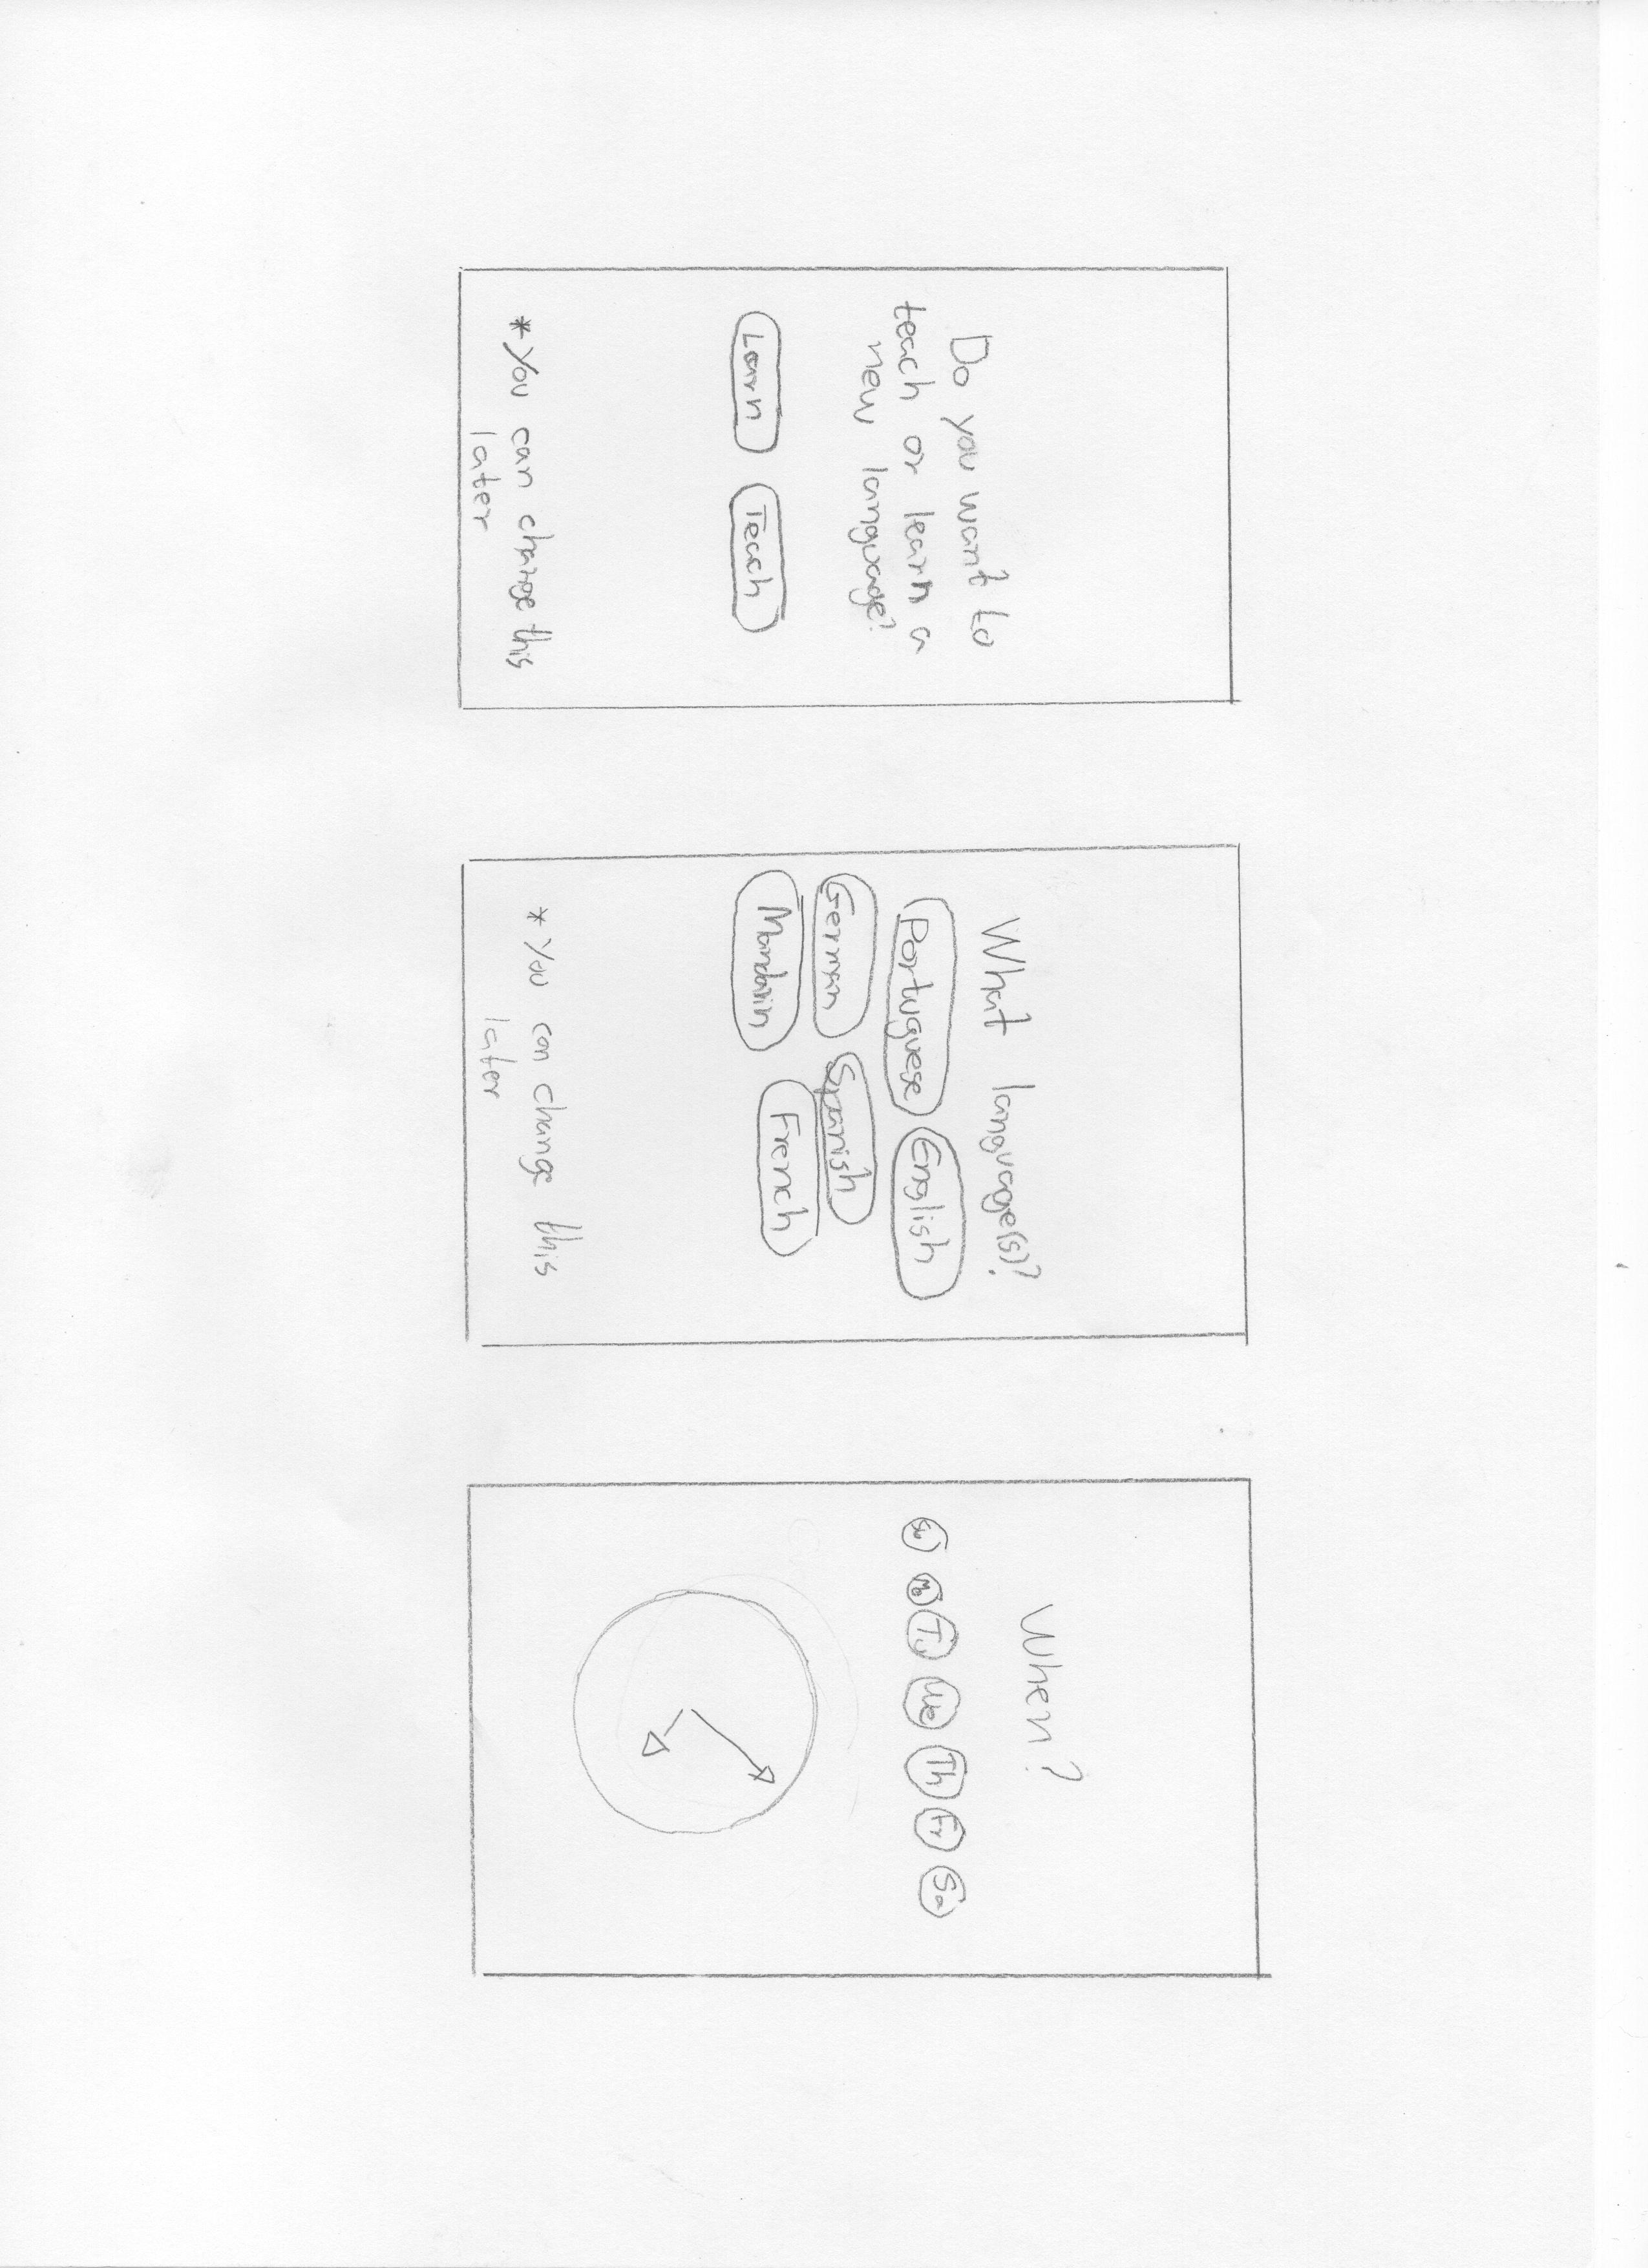 Do you want to
teach or learn a
new language?
Learn Teach
*You can change this
later
What language(s)?
Portuguese English
German Spanish
Mandarin French
*You can change this
later
When?
Su Mo Tu We Th Fr Sa